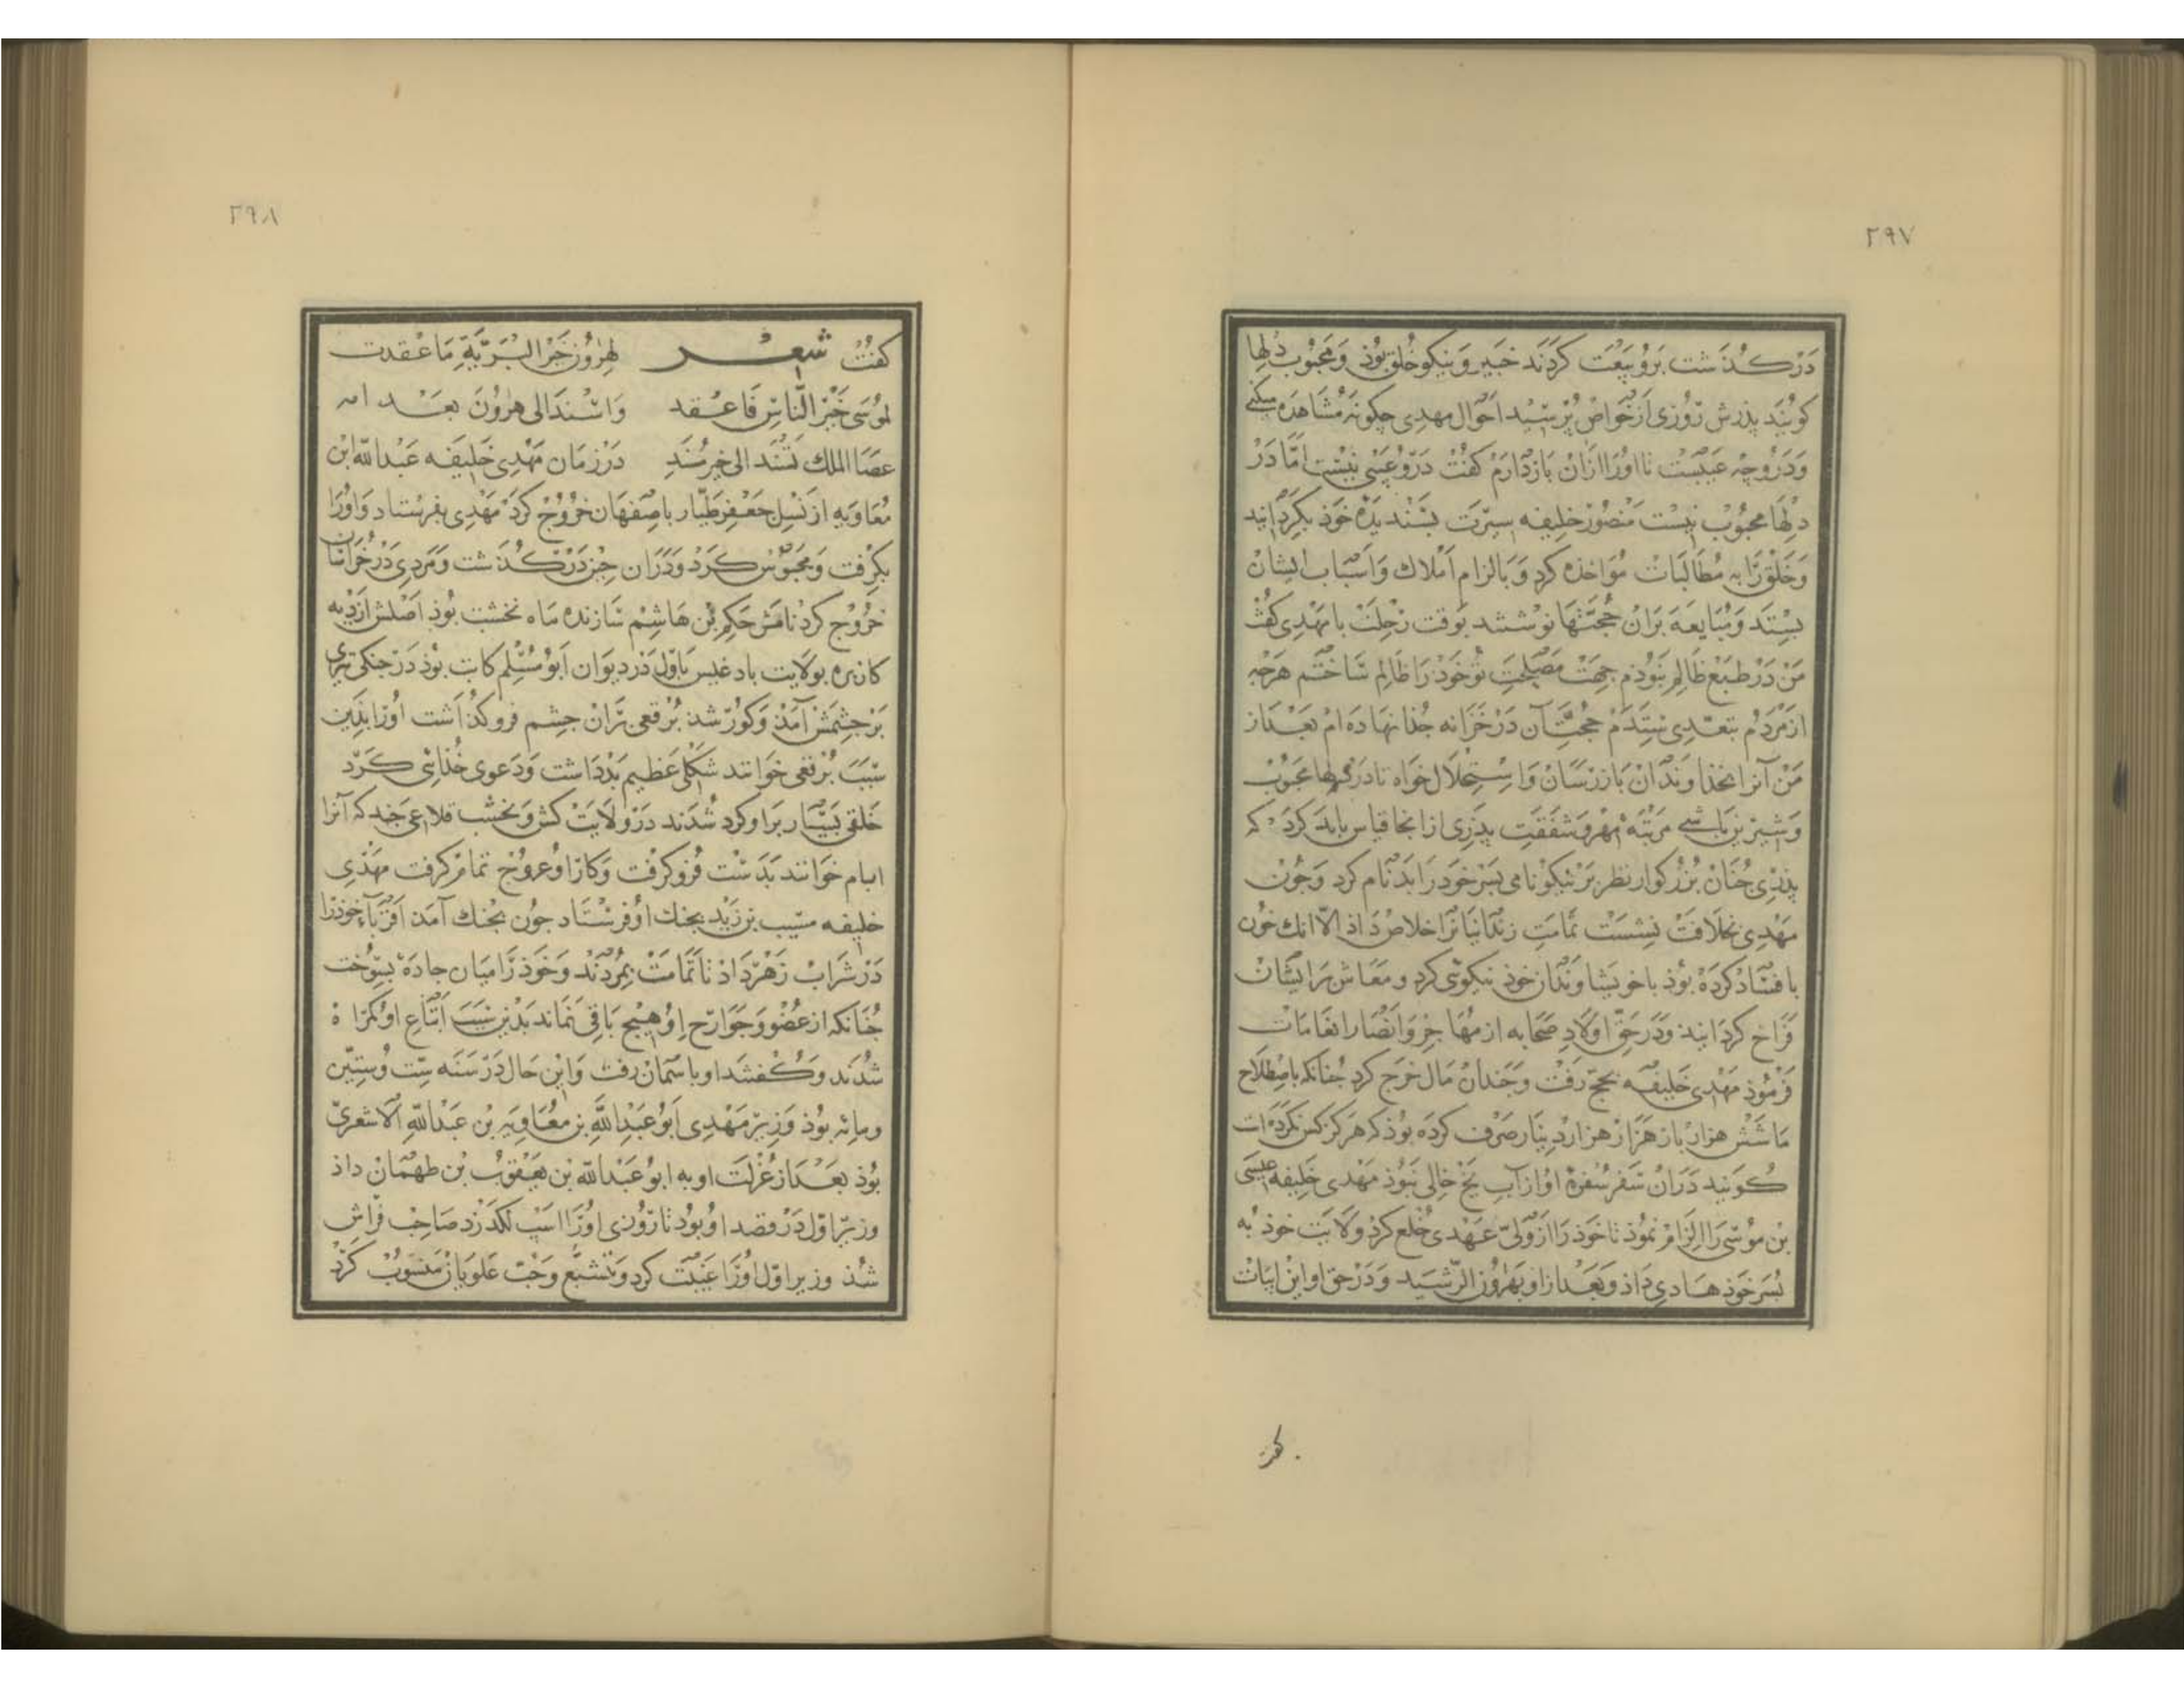 ٢٩٧
درکذشت برو بیعت کردند خبیر و نیکو خلق بوذ و محبوب دلها
کویند پذرش روزی از خواص پرسید احوال مهدی چکونه مشاهده میکنی
و در و چه عیبست تا اورا ازان بازدارم کفت درو عیبی نیست امّا در
دلها محبوب نیست منصور خلیفه سیرت پسندیده خوذ بکردانید
و خلق را به مطالبات مؤاخذه کرد و بالزام املاک و اسباب ایشان
بستد و مبایعه بران حجتها نوشتند بوقت رحلت با مهدی کفت
من در طبع ظالم نبوذم جهت مصلحت تو خوذ را ظالم ساختم هرچه
از مردم بتعدی ستدم حجت آن در خزانه جذا نهاده ام بعد از
من آنرا بخذاوندان باز رسان و استحلال خواه تا در دلها محبوب
و شیرین باشی مرتبه مهر و شفقت پدری ازانجا قیاس باید کرد که
پذری جنان بزرکوار نظر بر نیکونامی پسر خوذ را بدنام کرد و جون
مهدی بخلافت نشست تمامت زندانیانرا خلاص داذ الّا انک خون
با فساد کرده بوذ با خویشاوندان خوذ نیکوئی کرد و معاش برایشان
فراخ کردانید و در حق اولاد صحابه از مهاجر و انصار انعامات
فرموذ مهدی خلیفه بحج رفت و جندان مال خرج کرد جنانکه باصطلاح
ما شش هزار بار هزار هزار دینار صرف کرده بوذ که هرکز کس نکرده است
کویند دران سفر سفره او از آب یخ خالی نبوذ مهدی خلیفه عیسی
بن موسی را الزام نموذ تا خوذ را از ولیّ عهدی خلع کرد ولایت خوذ به
پسر خوذ هادی داذ و بعد از او بهرون الرّشید و در حق او این ابیات
کفت
٢٩٨
کفت شعر لهرون خیر البریّة ما عقدت
لموسی خیر النّاس فاعقد واسند الی هرون بعد امه
عصا الملک تسند الی خیر مسند در زمان مهدی خلیفه عبدالله ابن
معاویه از نسل جعفر طیّار باصفهان خروج کرد مهدی بفرستاد و اورا
بکرفت و محبوس کرد و دران حبس درکذشت و مردی در خراسان
خروج کرد نامش حکیم بن هاشم سازنده ماه نخشب بوذ اصلش از دیه
کازره بولایت بادغیس باوّل در دیوان ابومسلم کاتب بوذ در جنکی تیری
بر جشمش آمد و کور شد برقعی بران جشم فروکذاشت اورا بذین
سبب برقعی خوانند شکلی عظیم بد داشت و دعوی خذائی کرد
خلقی بسیار برا و کرد شدند در ولایت کش و نخشب قلاعی جند که آنرا
ابام خوانند بدست فروکرفت و کار او عروج تمام کرفت مهذی
خلیفه مسیب بن زید بجنک او فرستاد جون بجنک آمد اقرباء خوذرا
در شراب زهر داذ تا تمامت بمردند و خوذ را میان جاده بسوخت
جنانکه از عضو و جوارح او هیج باقی نماند بدین سبب اتباع او کمراه
شدند و کفتند او باسمان رفت و این حال در سنه ستّ و ستّین
و مائه بوذ وزیر مهدی ابو عبدالله بن معاویه بن عبدالله الاشعریّ
بوذ بعد از عزلت او به ابو عبدالله بن یعقوب بن طهمان داذ
وزیر اوّل در قصد او بوذ تا روزی اورا اسب لکد زد صاحب فراش
شذ وزیر اوّل اورا غیبت کرد و بتشیّع و حبّ علویان منسوب کرد